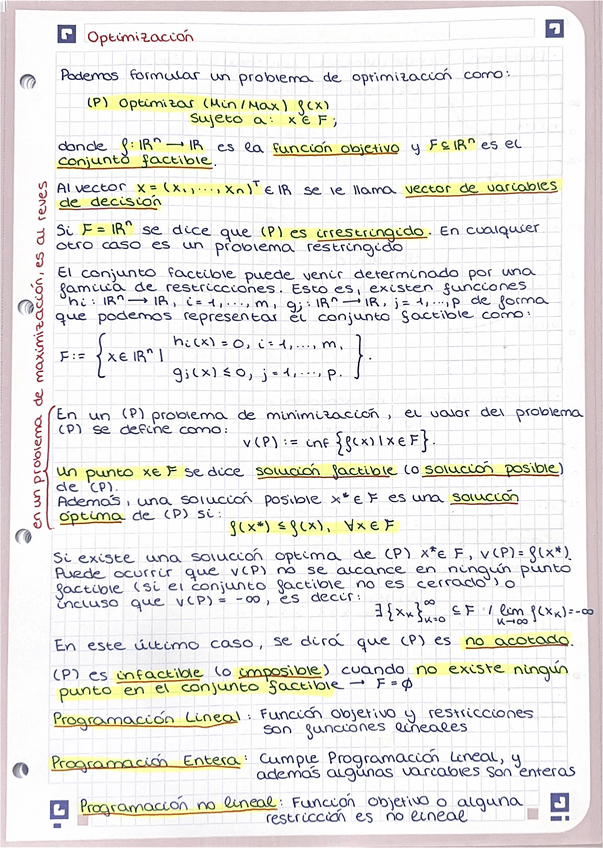 Optimización
Podemos formular un problema de oprimización como:
(P) Optimizar (Min/Max) f(x)
Sujeto a: x ∈ F;
donde f: ℝⁿ → ℝ es la función objetivo y F ⊆ ℝⁿ es el
conjunto factible.
Al vector x = (x₁, ..., xₙ)ᵀ ∈ ℝ se le llama vector de variables
de decisión
Si F = ℝⁿ se dice que (P) es irrestringido. En cualquier
otro caso es un problema restringido
El conjunto factible puede venir determinado por una
familia de restricciones. Esto es, existen funciones
hᵢ: ℝⁿ → ℝ, i = 1, ..., m, gⱼ: ℝⁿ → ℝ, j = 1, ..., p de forma
que podemos representar el conjunto factible como:
hᵢ(x) = 0, i = 1, ..., m,
F := { x ∈ ℝⁿ | }.
gⱼ(x) ≤ 0, j = 1, ..., p.
en un problema de maximización, es al reves
En un (P) problema de minimización, el valor del problema
(P) se define como:
v(P) := inf {f(x) | x ∈ F}.
Un punto x ∈ F se dice solución factible (o solución posible)
de (P).
Además, una solución posible x* ∈ F es una solución
óptima de (P) si:
f(x*) ≤ f(x), ∀x ∈ F
Si existe una solución optima de (P) x* ∈ F, v(P) = f(x*).
Puede ocurrir que v(P) no se alcance en ningún punto
factible (si el conjunto factible no es cerrado) o
incluso que v(P) = -∞, es decir:
∃{xₖ}ₖ₌₀^∞ ⊆ F / lim k→∞ f(xₖ) = -∞
En este último caso, se dirá que (P) es no acotado.
(P) es infactible (o imposible) cuando no existe ningún
punto en el conjunto factible → F = ∅
Programación Lineal: Función objetivo y restricciones
son funciones lineales
Programación Entera: Cumple Programación Lineal, y
además algunas variables son enteras
Programación no lineal: Función objetivo o alguna
restricción es no lineal